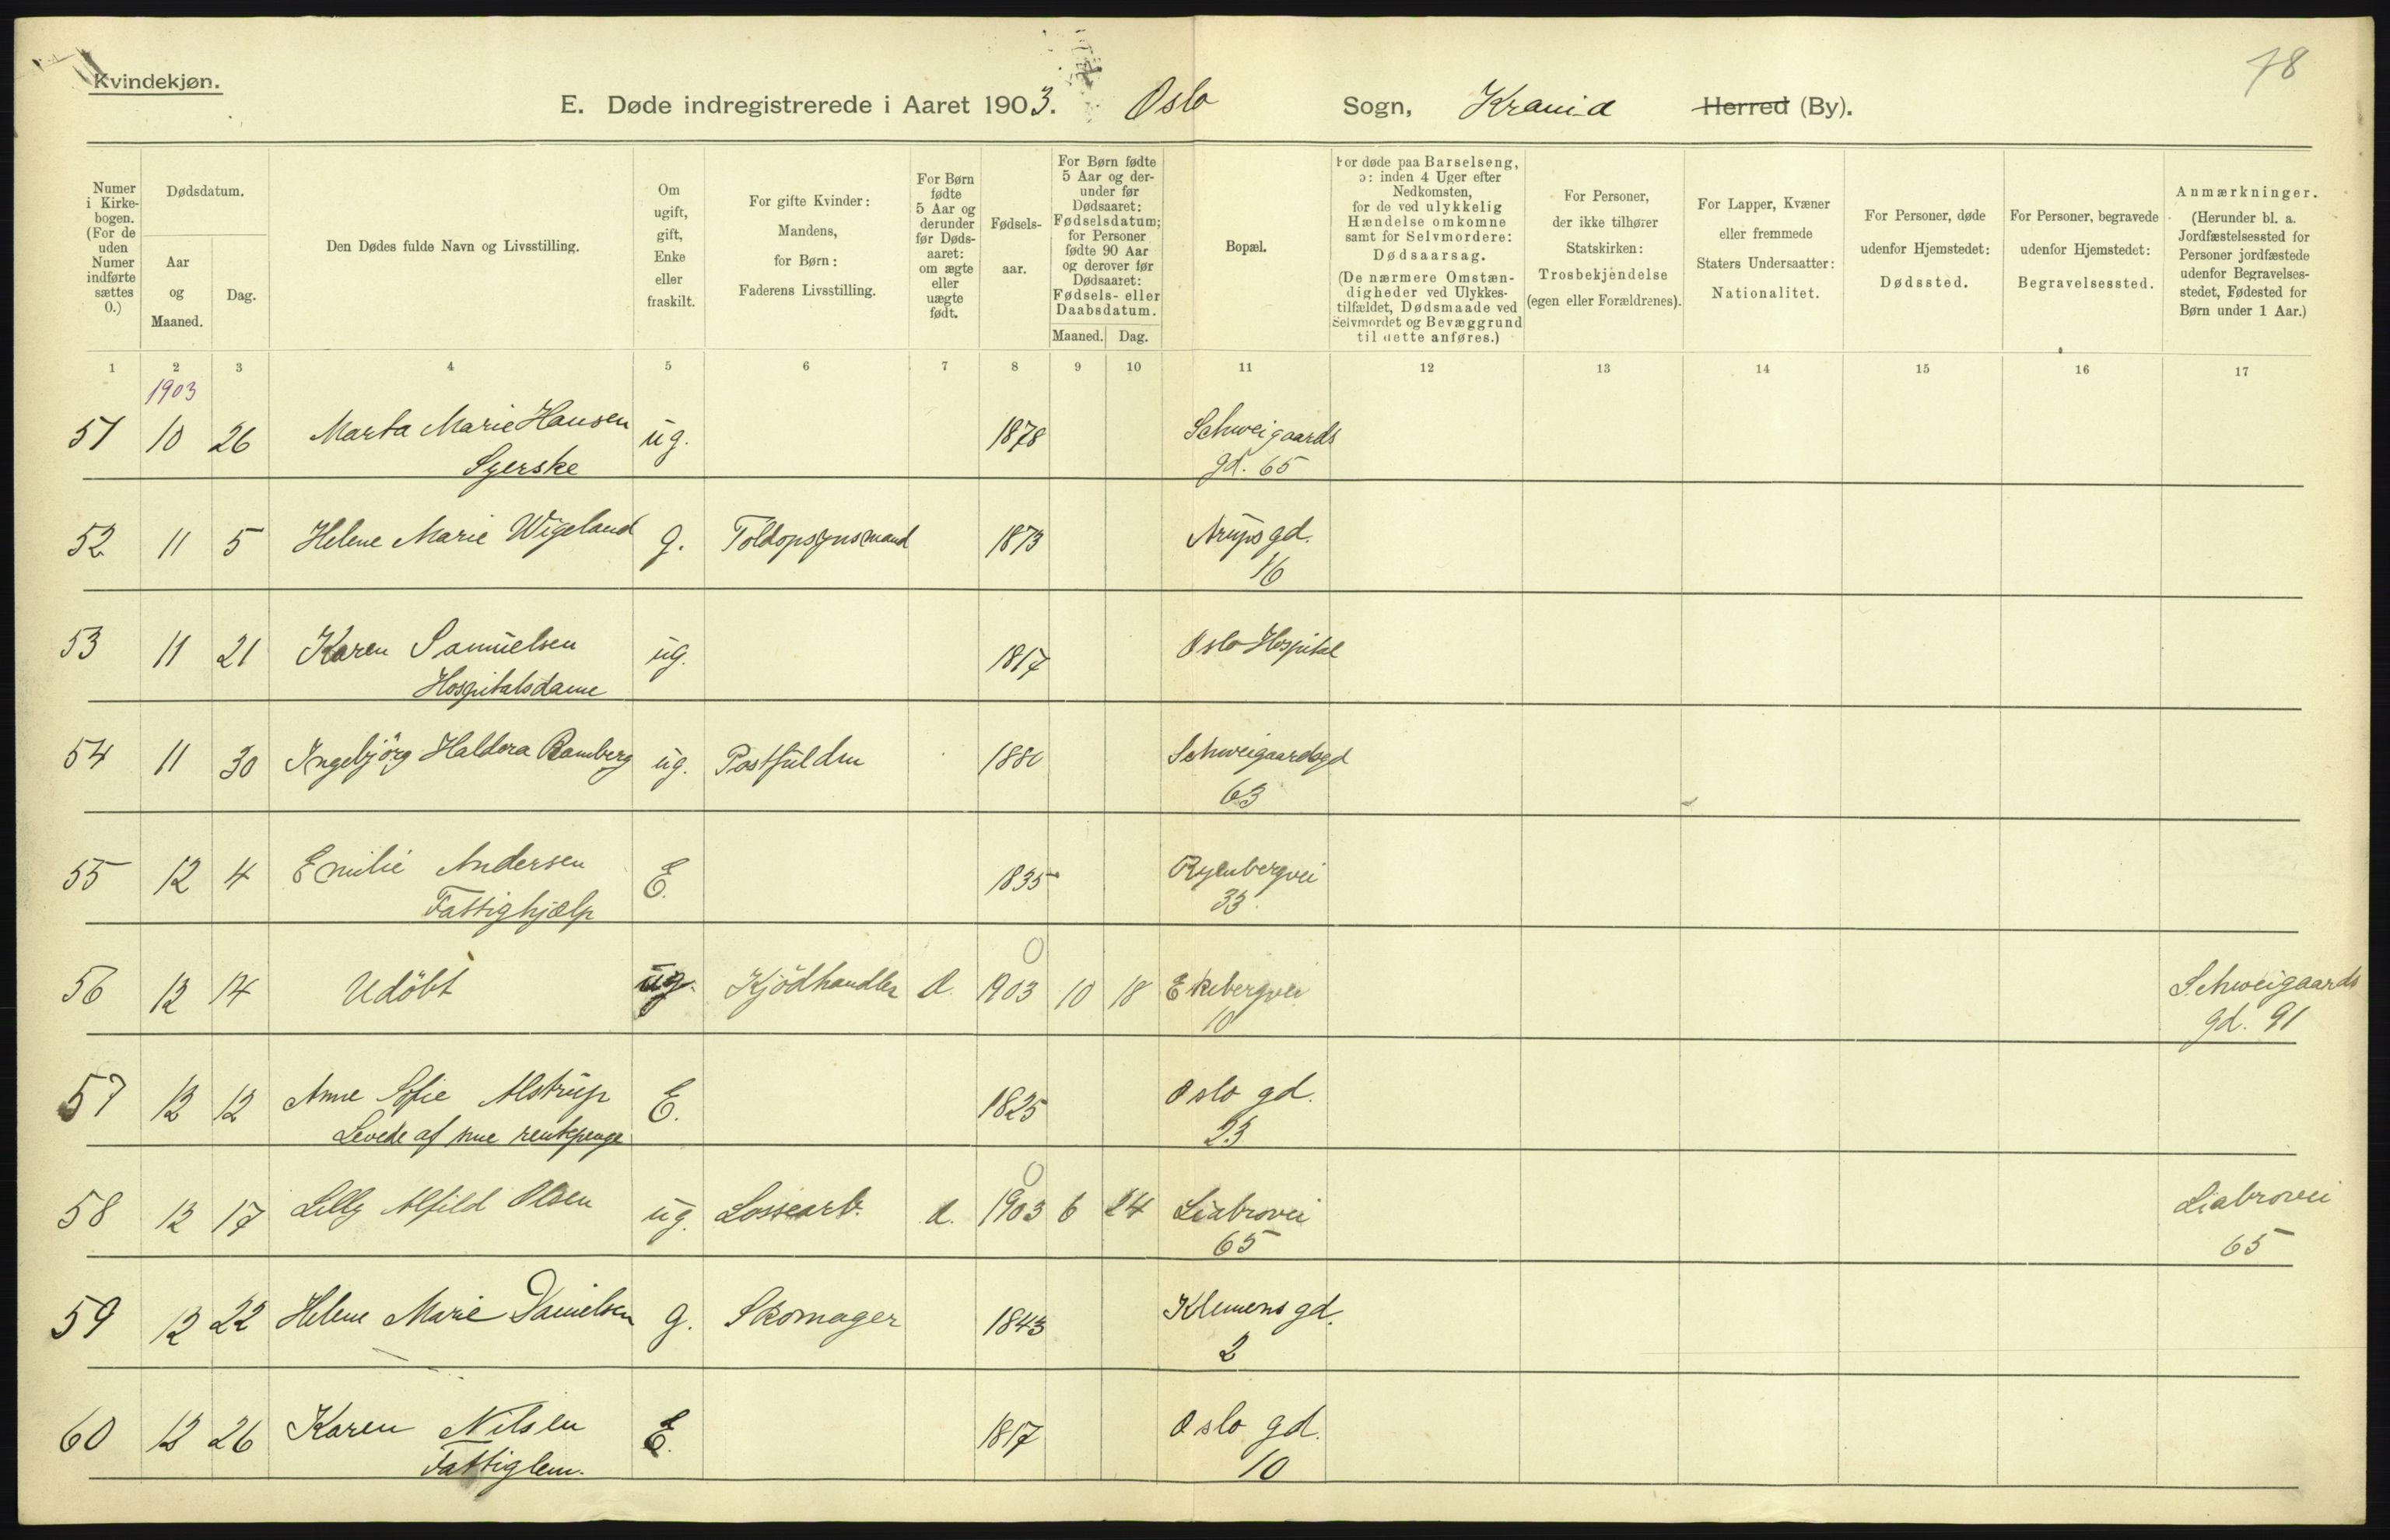 78
Kvindekjøn.
E. Døde indregistrerede i Aaret 1903. Oslo Sogn, Krania Herred (By).
Numer i Kirke-bogen. (For de uden Numer indførte sættes 0.)
Dødsdatum.
Aar og Maaned.
Dag.
Den Dødes fulde Navn og Livsstilling.
Om ugift, gift, Enke eller fraskilt.
For gifte Kvinder: Mandens, for Børn: Faderens Livsstilling.
For Børn fødte 5 Aar og derunder før Døds-aaret: om ægte eller uægte født.
Fødsels-aar.
For Børn fødte 5 Aar og der-under før Dødsaaret: Fødselsdatum; for Personer fødte 90 Aar og derover før Dødsaaret: Fødsels- eller Daabsdatum.
Maaned. Dag.
Bopæl.
For døde paa Barselseng, ɔ: inden 4 Uger efter Nedkomsten, for de ved ulykkelig Hændelse omkomne samt for Selvmordere: Dødsaarsag. (De nærmere Omstæn-digheder ved Ulykkes-tilfældet, Dødsmaade ved Selvmordet og Bevæggrund til dette anføres.)
For Personer, der ikke tilhører Statskirken: Trosbekjendelse (egen eller Forældrenes).
For Lapper, Kvæner eller fremmede Staters Undersaatter: Nationalitet.
For Personer, døde udenfor Hjemstedet: Dødssted.
For Personer, begravede udenfor Hjemstedet: Begravelsessted.
Anmærkninger. (Herunder bl. a. Jordfæstelsessted for Personer jordfæstede udenfor Begravelses-stedet, Fødested for Børn under 1 Aar.)
1 2 3 4 5 6 7 8 9 10 11 12 13 14 15 16 17
1903
51 10 26 Marta Marie Hansen ug. 1878 Schweigaards
Syerske gd. 65
52 11 5 Helene Marie Wigeland g. Toldopsynsmand 1873 Arups gd.
16
53 11 21 Karen Samuelsen ug. 1817 Oslo Hospital
Hospitalsdame
54 11 30 Ingebjörg Haldora Ramberg ug. Postfuldm 1880 Schweigaardsgd
63
55 12 4 Emilie Andersen E. 1835 Ryenbergvei
Fattighjælp 33.
0
56 12 14 Udöbt ug. Kjödhandler Æ 1903 10 18 Ekebergvei Schweigaards
10 gd. 91
57 12 12 Anne Sofie Alstrup E. 1825 Oslo gd.
Levede af sine rentepenge 23
0
58 12 17 Lilly Alfild Olsen ug. Lossearb. Æ. 1903 6 24 Liabrovei Liabrovei
65 65
59 12 22 Helene Marie Danielsen g. Skomager 1843 Klemens gd.
2
60 12 26 Karen Nilsen E. 1817 Oslo gd.
Fattiglem. 10